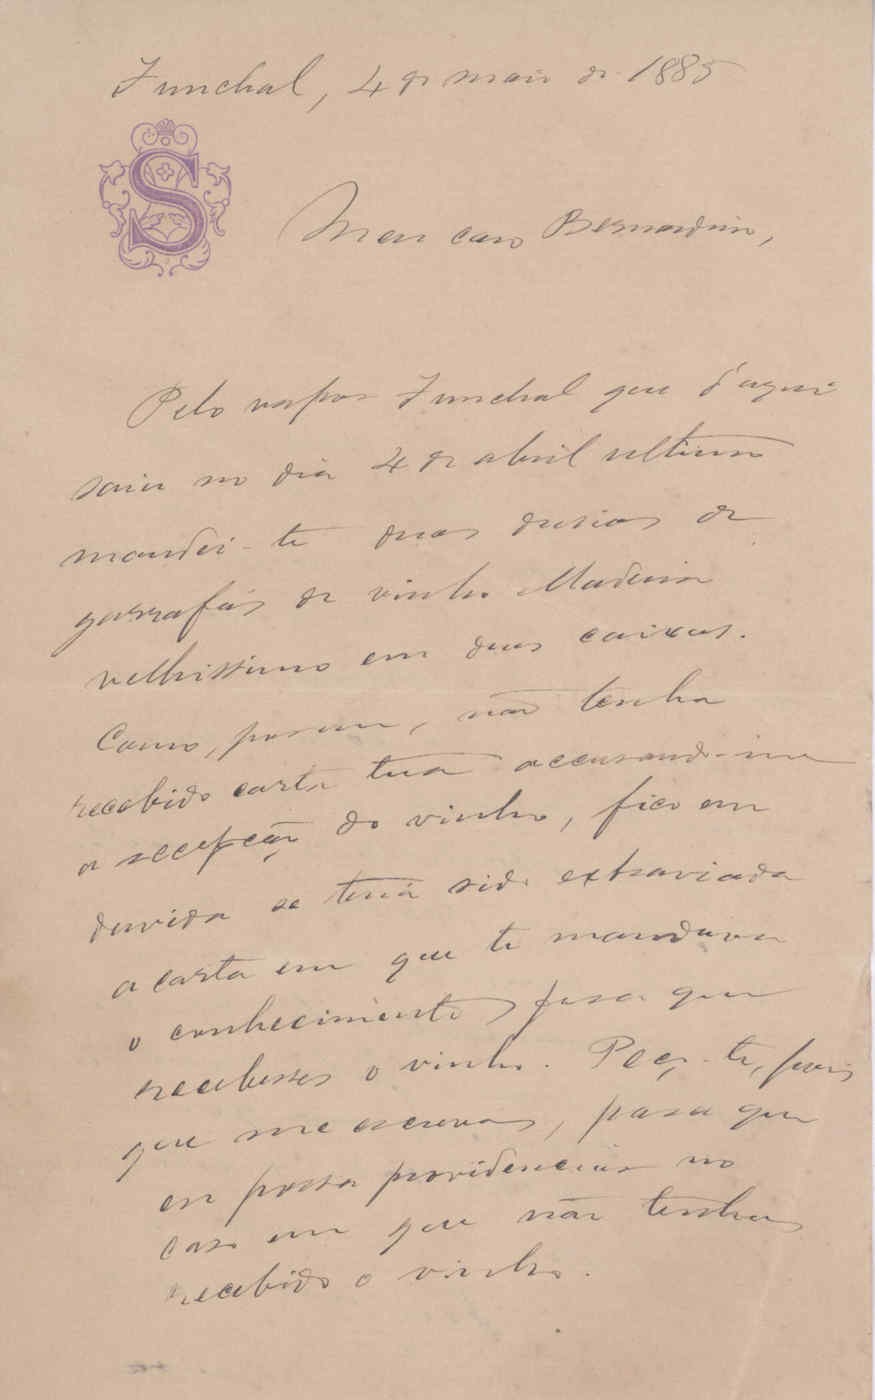 Funchal, 4 de maio de 1885
S
Meu caro Bernardino,
Pelo vapor Funchal que d'aqui
saiu no dia 4 de abril ultimo
mandei-te duas dusias de
garrafas de vinho Madeira
velhissimo em duas caixas.
Como, porem, não tenha
recebido carta tua accusando-me
a recepção do vinho, fico em
duvida se terá sido extraviada
a carta em que te mandava
o conhecimento para que
recebesses o vinho. Peço-te, pois
que me escrevas, para que
eu possa providenciar no
caso em que não tenhas
recebido o vinho.